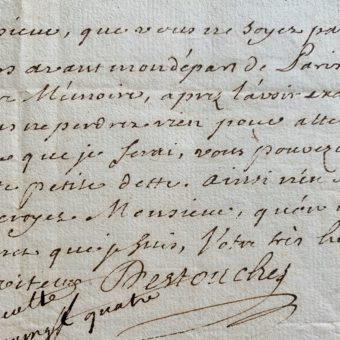 sieur, que vous ne soyez pa
rs avant mon départ de Paris
r Mémoire, aprez l'avoir exa
us ne perdrez rien pour atte
e que je ferai, vous pouvez
e petite dette. ainsi n'en
croyez Monsieur, qu'on n
que je suis, Votre très h
viteur Destouches
vingt quatre